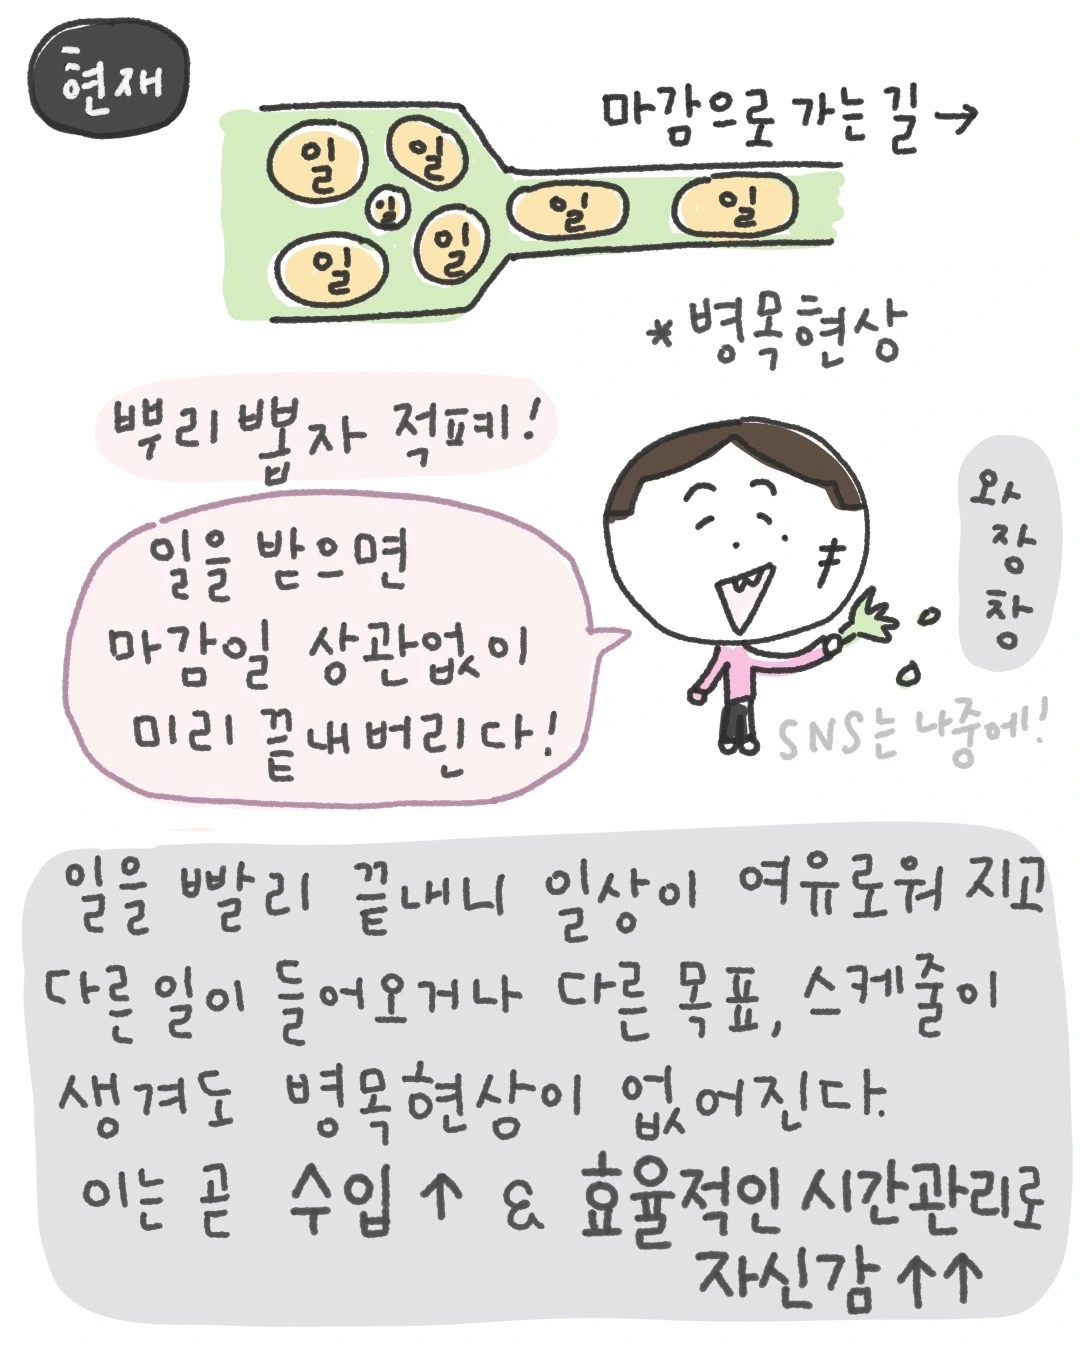 현재
마감으로 가는 길 →
일 일 일 일 일 일 일
* 병목현상
뿌리 뽑자 적폐!
일을 받으면
마감일 상관없이
미리 끝내버린다!
와
장
창
SNS는 나중에!
일을 빨리 끝내니 일상이 여유로워 지고
다른 일이 들어오거나 다른 목표, 스케줄이
생겨도 병목현상이 없어진다.
이는 곧 수입↑ & 효율적인 시간관리로
자신감↑↑